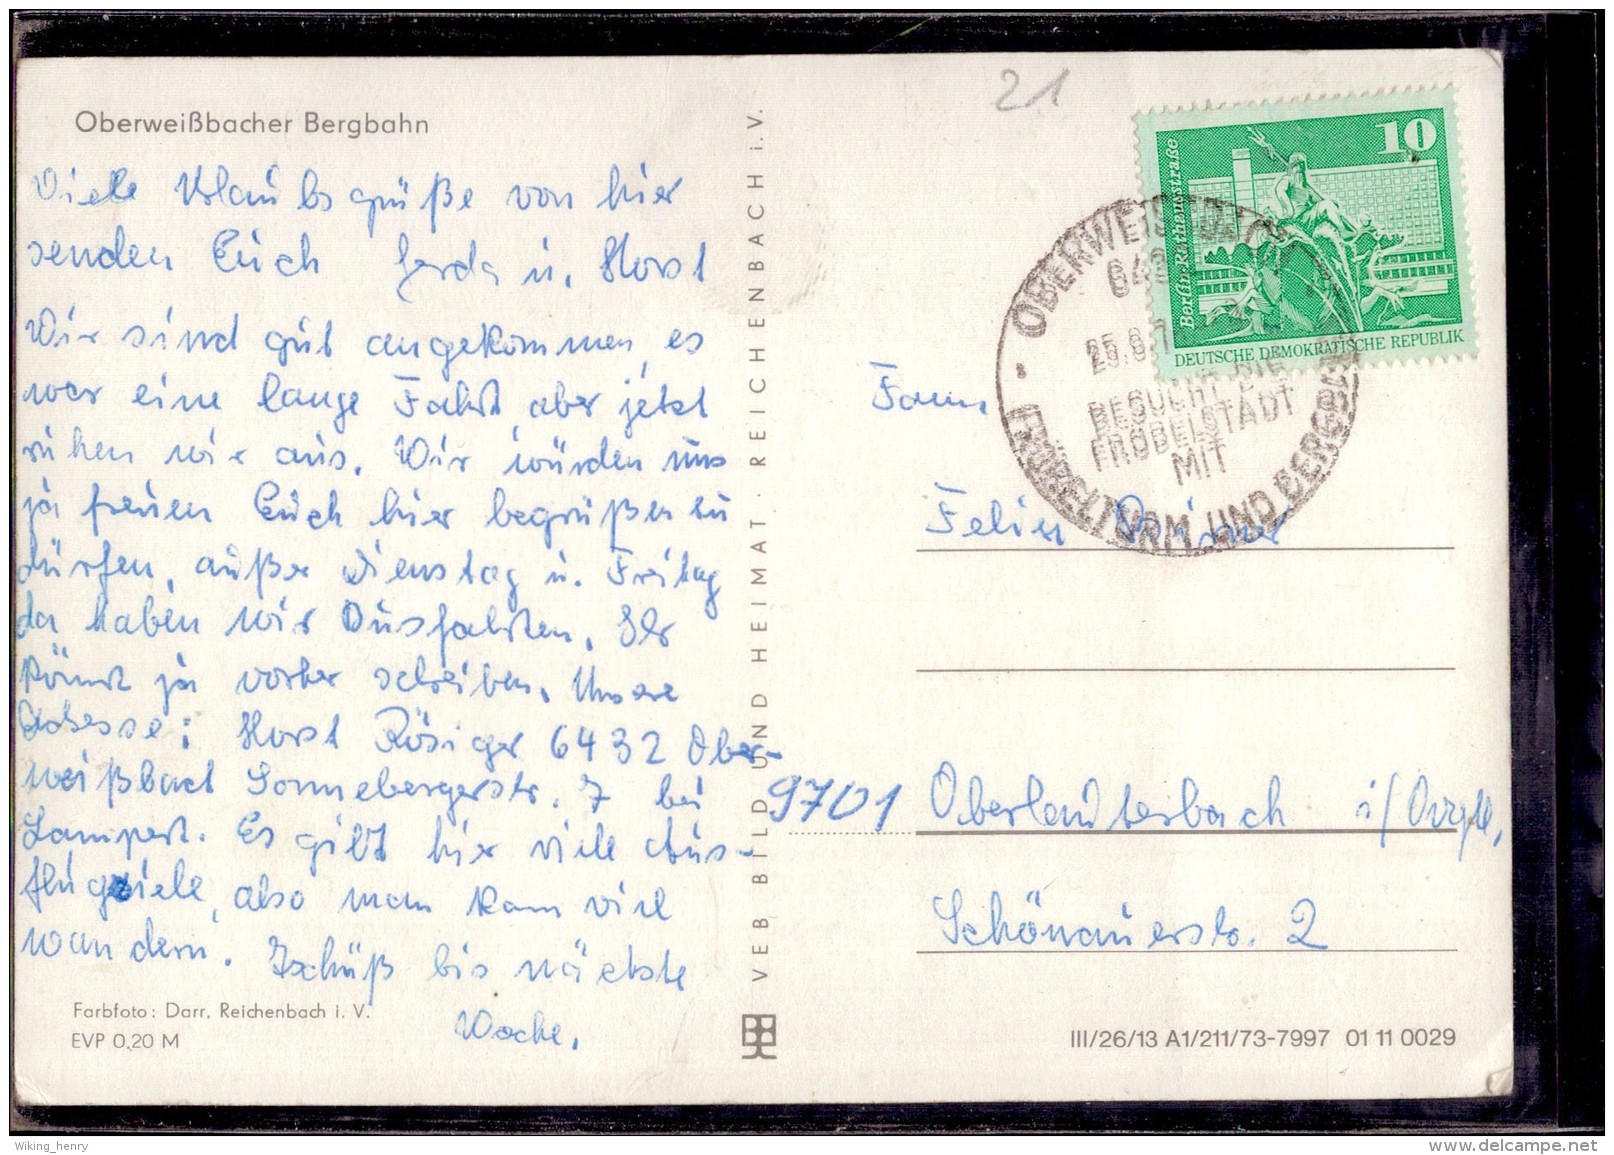 Oberweißbacher Bergbahn
Viele Urlaubsgrüße von hier
senden Euch Gerda u. Horst
Wir sind gut angekommen, es
war eine lange Fahrt aber jetzt
ruhen wir aus. Wir würden uns
ja freuen Euch hier begrüßen zu
dürfen, außer Dienstag u. Freitag
da haben wir Ausfahrten. Ihr
könnt ja vorher schreiben. Unsere
Adresse: Horst Rösiger 6432 Ober-
weißbach Sonnebergerstr. 7 bei
Lampert. Es gibt hier viele Aus-
flugziele, also man kann viel
wandern. Tschüß bis nächste
Woche.
Farbfoto: Darr, Reichenbach i. V.
EVP 0,20 M
VEB BILD UND HEIMAT · REICHENBACH i. V.
21
10
Berlin, Rathausstraße
DEUTSCHE DEMOKRATISCHE REPUBLIK
OBERWEISSBACH
25.8.7
BESUCHT DIE
FRÖBELSTADT
MIT
FRÖBELTURM UND BERGBAHN
Fam.
Felix
9701 Oberlauterbach i/Vogtl.
Schönauerstr. 2
III/26/13 A1/211/73-7997 01 11 0029
Wiking_henry
www.delcampe.net